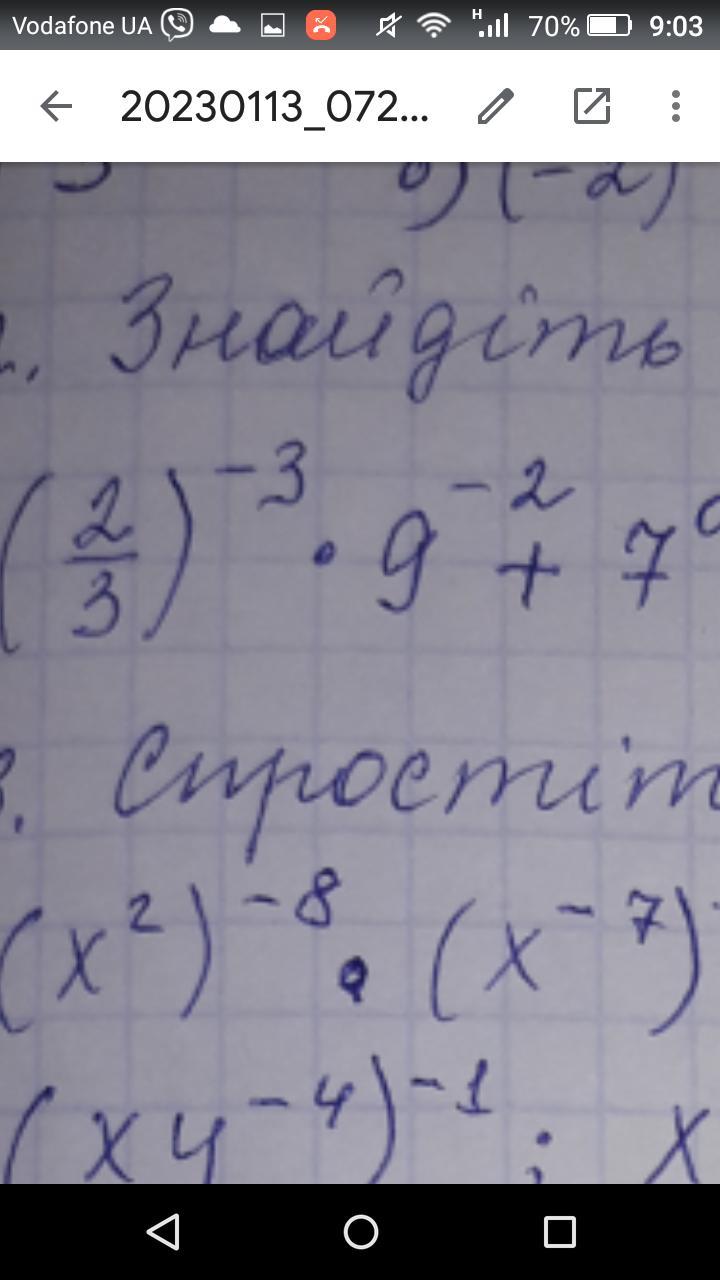 Vodafone UA 70% 9:03
20230113_072...
б) (-2)
2. Знайдіть
(2/3)^-3 · 9^-2 + 7^0
3. Спростіт
(x^2)^-8 · (x^-7)
(xy^-4)^-1 ; x